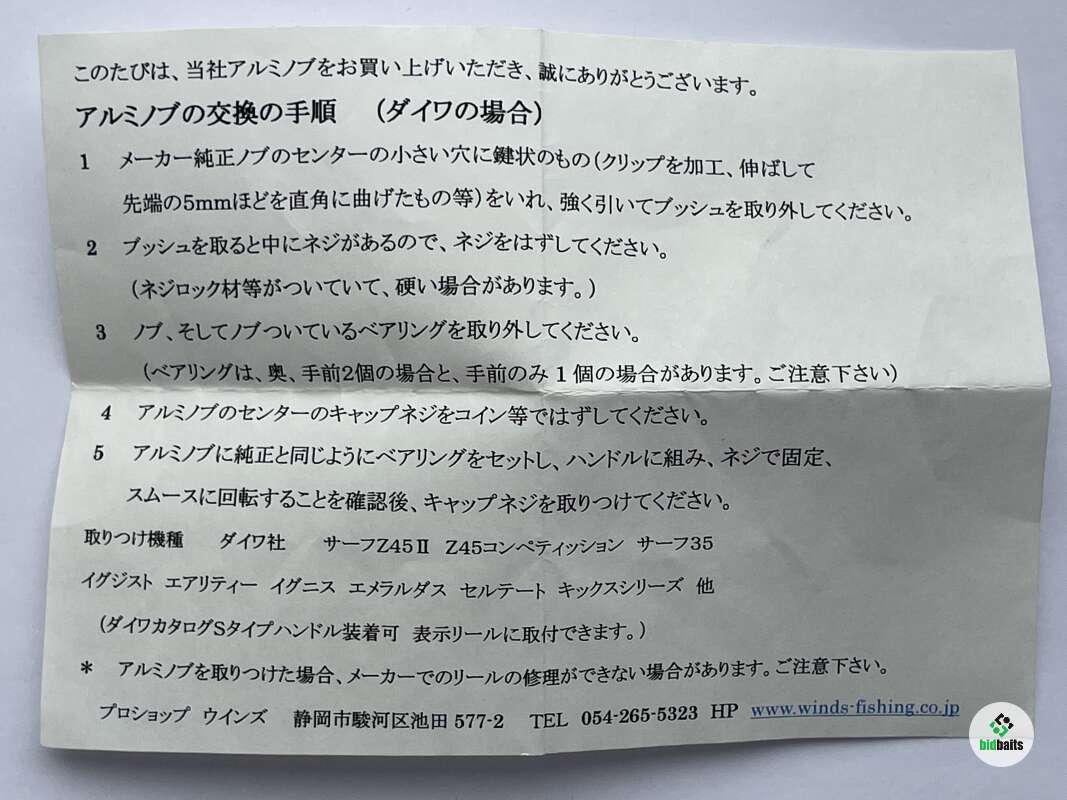 このたびは、当社アルミノブをお買い上げいただき、誠にありがとうございます。
アルミノブの交換の手順　（ダイワの場合）
1　メーカー純正ノブのセンターの小さい穴に鍵状のもの（クリップを加工、伸ばして
先端の5mmほどを直角に曲げたもの等）をいれ、強く引いてブッシュを取り外してください。
2　ブッシュを取ると中にネジがあるので、ネジをはずしてください。
（ネジロック材等がついていて、硬い場合があります。）
3　ノブ、そしてノブついているベアリングを取り外してください。
（ベアリングは、奥、手前2個の場合と、手前のみ1個の場合があります。ご注意下さい）
4　アルミノブのセンターのキャップネジをコイン等ではずしてください。
5　アルミノブに純正と同じようにベアリングをセットし、ハンドルに組み、ネジで固定、
スムースに回転することを確認後、キャップネジを取りつけてください。
取りつけ機種　ダイワ社　サーフZ45Ⅱ　Z45コンペティッション　サーフ35
イグジスト　エアリティー　イグニス　エメラルダス　セルテート　キックスシリーズ　他
（ダイワカタログSタイプハンドル装着可　表示リールに取付できます。）
*　アルミノブを取りつけた場合、メーカーでのリールの修理ができない場合があります。ご注意下さい。
プロショップ　ウインズ　静岡市駿河区池田 577-2　TEL 054-265-5323 HP www.winds-fishing.co.jp
bidbaits